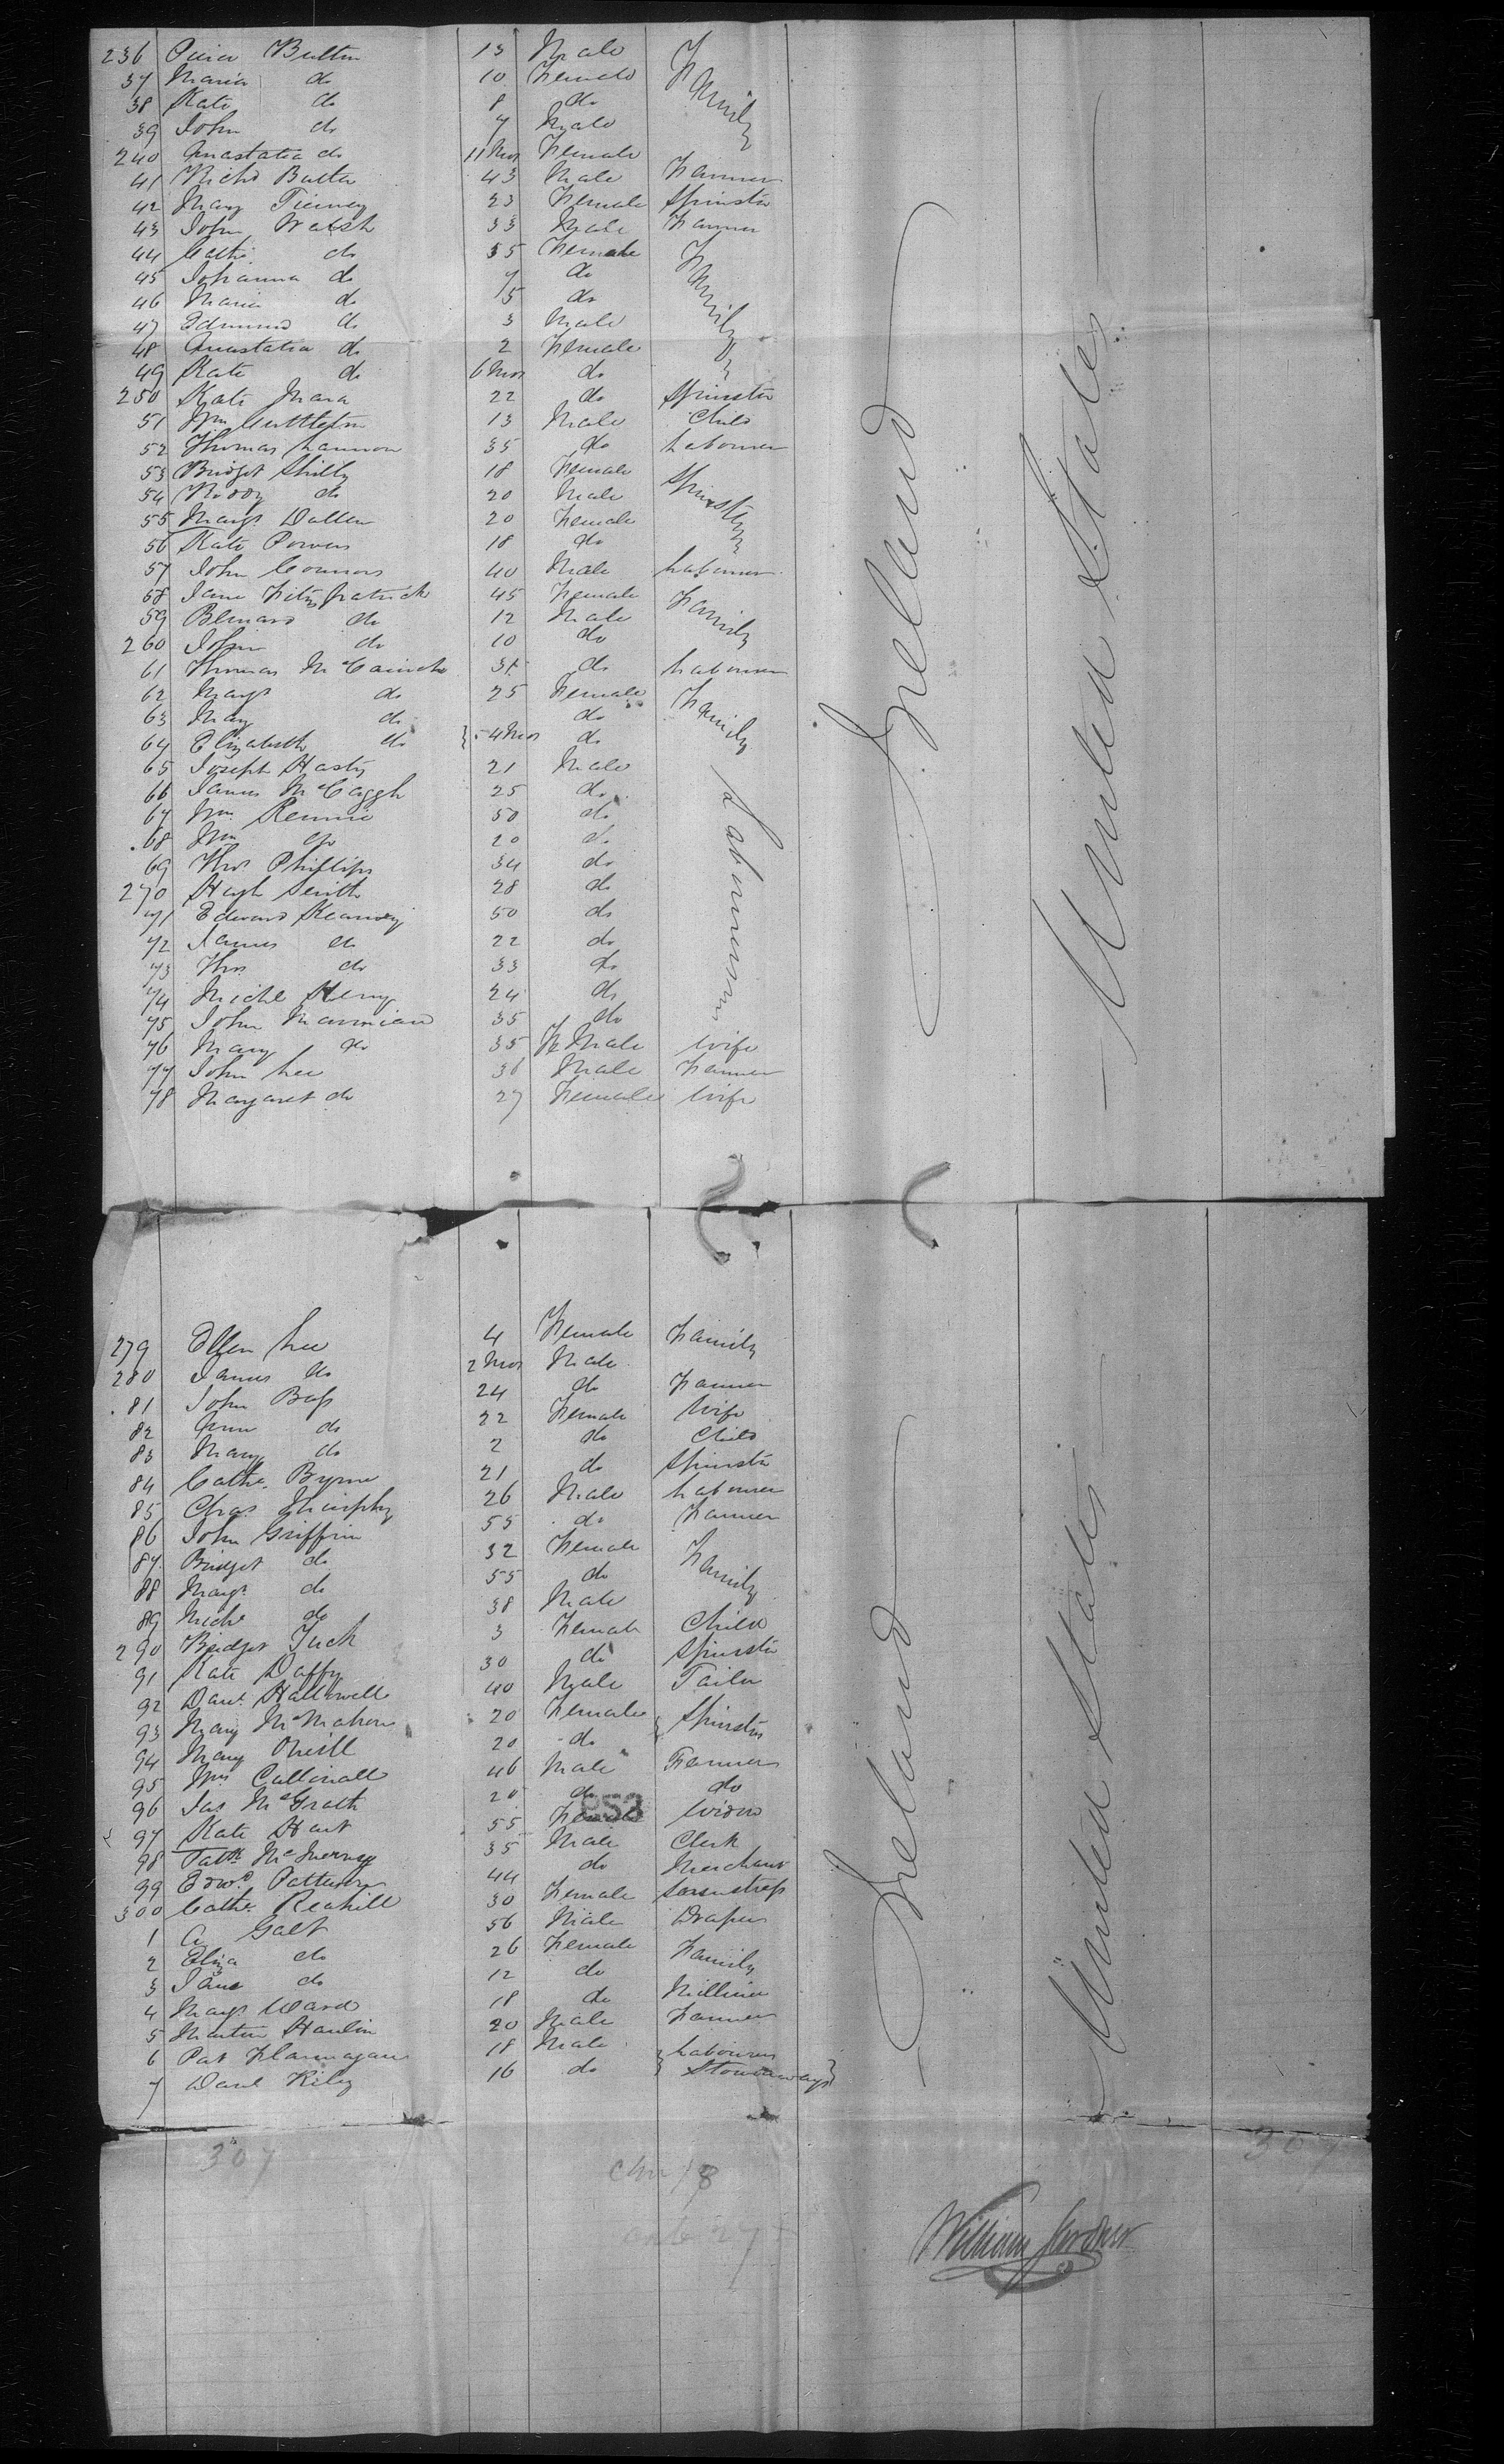 236 Butler 13 Male Family
37 Maria do 10 Female
38 Kate do 8 do
39 John do 7 Male
240 Anastatia do 11 Mos Female
41 Richd Butler 43 Male Farmer
42 Mary Tierney 23 Female Spinster
43 John Walsh 33 Male Farmer
44 Cathe do 35 Female Family
45 Johanna do 7 do
46 Maria do 5 do
47 Edmund do 3 Male
48 Anastatia do 2 Female
49 Kate do 6 Mos do
250 Kate Mara 22 do Spinster
51 Wm 13 Male Child
52 Thomas Lannon 35 do Labourer
53 Bridget Shilly 18 Female Spinsters
54 Roddy do 20 Male
55 Margt Dalton 20 Female
56 Kate Powers 18 do
57 John Connors 40 Male Labourer
58 Jane Fitzpatrick 45 Female Family
59 Bernard do 12 Male
260 John do 10 do
61 Thomas 35 do Labourer
62 Margt do 25 Female Family
63 Mary do do
64 Elizabeth do } 4 Mos do
65 Joseph Hasty 21 Male Labourers
66 James McCaggh 25 do
67 Wm Rennie 50 do
68 Wm do 20 do
69 Thos Phillips 34 do
270 Hugh Smith 28 do
71 Edward Kearney 50 do
72 James do 22 do
73 Thos do 33 do
74 Michl Henry 24 do
75 John Marnian 35 do
76 Mary do 35 FeMale Wife
77 John Lee 36 Male Farmer
78 Margaret do 27 Female Wife
Ireland
United States
279 Ellen Lee 4 Female Family
280 James do 2 Mos Male
81 John Bass 24 do Farmer
82 Ann do 22 Female Wife
83 Mary do 2 do Child
84 Cathe. Byrne 21 do Spinster
85 Chas. Murphy 26 Male Labourer
86 John Griffin 55 do Farmer
87 Bridget do 32 Female Family
88 Margt do 55 do
89 Michl do 38 Male
290 Bridget Tuck 3 Female Child
91 Kate Daffy 30 do Spinster
92 Danl. Hallowell 40 Male Tailor
93 Mary McMahon 20 Female } Spinsters
94 Mary Oneill 20 do
95 Wm Cullinall 46 Male Farmers
96 Jas McGrath 20 do do
97 Kate Hart 55 Female Widow
98 Patk McInerny 35 Male Clerk
99 Edwd. Patterson 44 do Merchant
300 Cathe Reahill 30 Female Seamstress
1 A Galt 56 Male Draper
2 Eliza do 26 Female Family
3 Jane do 12 do
4 Margt Ward 18 do Milliner
5 Martin Hanlin 20 Male Farmer
6 Pat Flannagan 18 Male } Labourers
7 Danl Kiley 16 do } Stowaways }
Ireland
United States
853
307
307
William Gardner